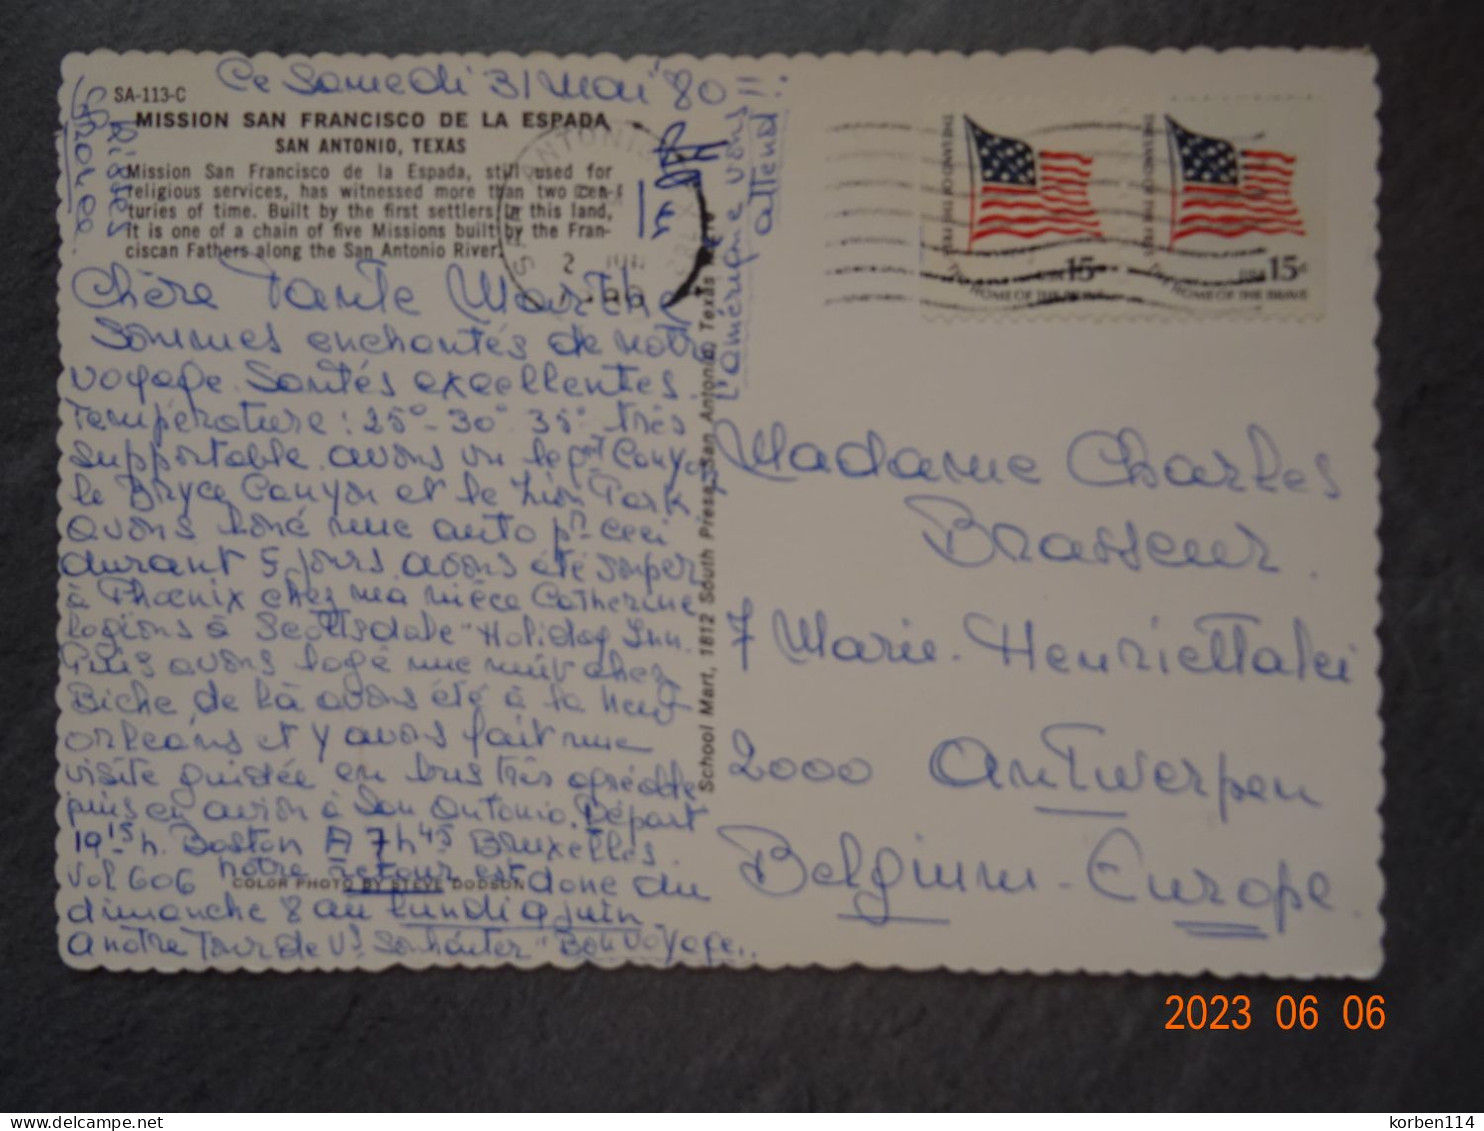 Ce Samedi 31 Mai '80
SA-113-C
MISSION SAN FRANCISCO DE LA ESPADA
SAN ANTONIO, TEXAS
Mission San Francisco de la Espada, still used for
religious services, has witnessed more than two cen-
turies of time. Built by the first settlers in this land,
it is one of a chain of five Missions built by the Fran-
ciscan Fathers along the San Antonio River.
Chère Tante Marthe
Sommes enchantés de notre
voyage. Santés excellentes.
Température : 25° - 30° 35° très
supportable. avons vu le gd Canyon
le Bryce Canyon et le Zion Park
avons loué une auto pr ceci
durant 5 jours. avons été souper
à Phoenix chez ma nièce Catherine
logions à Scottsdale "Holiday Inn.
Puis avons logé une nuit chez
Biche de là avons été à la Neuf
orléans et y avons fait une
visite guidée en bus très agréable
puis en avion à San Antonio. Départ
19.15 h. Boston A 7h45 Bruxelles.
Vol 606 notre retour est donc du
COLOR PHOTO BY STEVE DODSON
dimanche 8 au lundi 9 juin
à notre Tour de Vs Souhaiter "Bon Voyage..
Bises
l'amérique vous
attend !!
School Mart, 1812 South Presa, San Antonio, Texas
THE LAND OF THE FREE
THE HOME OF THE BRAVE
USA 15c
THE LAND OF THE FREE
THE HOME OF THE BRAVE
USA 15c
Madame Charles
Brasseur.
7 Marie-Henriettalei
2000 Antwerpen
Belgium - Europe.
2023 06 06
korben114